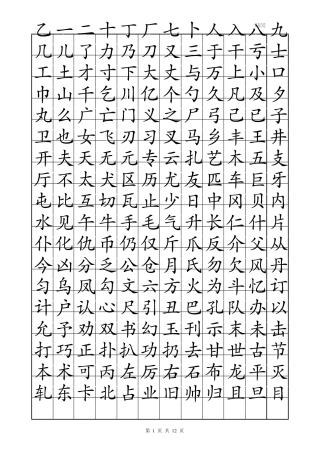 乙一二十丁厂七卜人入八九
几儿了力乃刀又三于干亏士
工土才寸下大丈与万上小口
巾山千乞川亿个勺久凡及夕
丸么广亡门义之尸弓己已子
卫也女飞刃习叉马乡丰王井
开夫天无元专云扎艺木五支
厅不太犬区历尤友匹车巨牙
屯比互切瓦止少日中冈贝内
水见午牛手毛气升长仁什片
仆化仇币仍仅斤爪反介父从
今凶分乏公仓月氏勿欠风丹
匀乌凤勾文六方火为斗忆订
计户认心尺引丑巴孔队办以
允予劝双书幻玉刊示末未击
打巧正扑扒功扔去甘世古节
本术可丙左厉右石布龙平灭
轧东卡北占业旧帅归旦目且
第 1 页 共 12 页